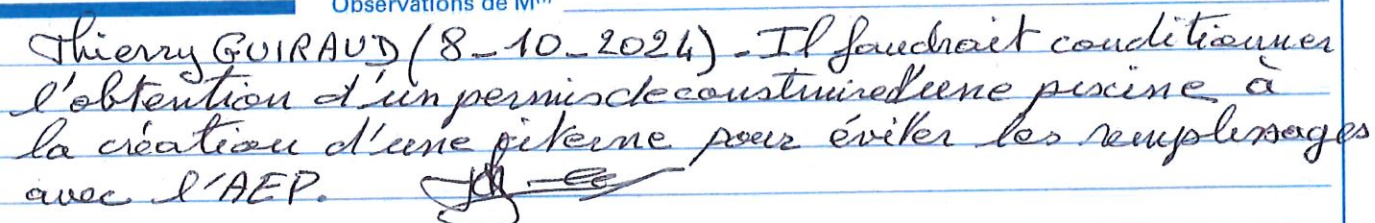 Observations de M
Thierry GUIRAUD (8-10-2024) - Il faudrait conditionner
l'obtention d'un permis de construire d'une piscine à
la création d'une citerne pour éviter les remplissages
avec l'AEP.